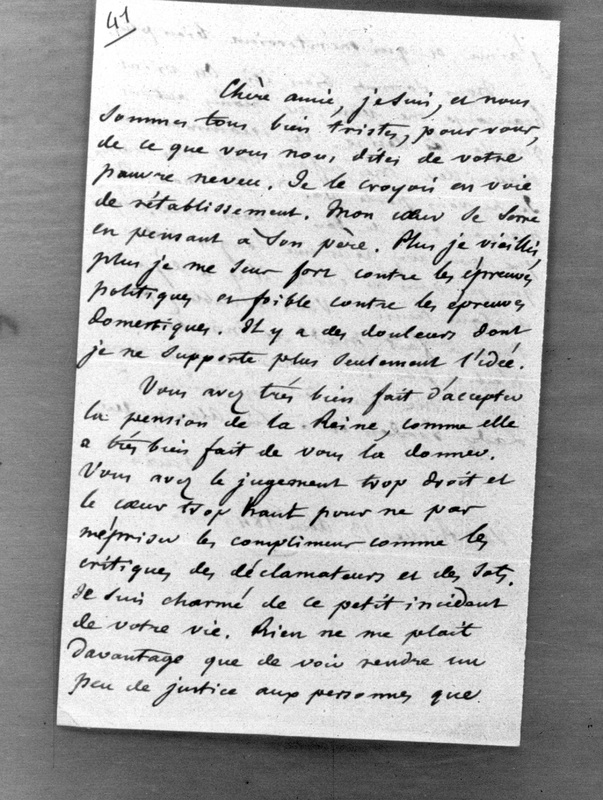 41
Chère amie, je suis, et nous
sommes tous bien tristes, pour vous,
de ce que vous nous dites de votre
pauvre neveu. Je le croyois en voie
de rétablissement. Mon cœur se serre
en pensant à son père. Plus je vieillis,
plus je me sens fort contre les épreuves
politiques et foible contre les épreuves
domestiques. Il y a des douleurs dont
je ne supporte plus seulement l'idée.
Vous avez très bien fait d'accepter
la pension de la Reine, comme elle
a très bien fait de vous la donner.
Vous avez le jugement trop droit et
le cœur trop haut pour ne pas
mépriser les complimens comme les
critiques des déclamateurs et des sots.
Je suis charmé de ce petit incident
de votre vie. Rien ne me plait
davantage que de voir rendre un
peu de justice aux personnes que